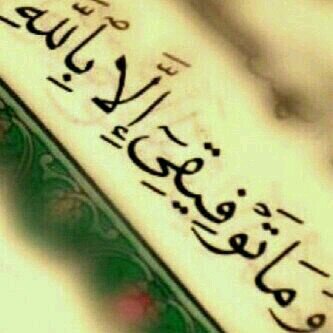 وَمَا تَوْفِيقِيٓ إِلَّا بِٱللَّهِ